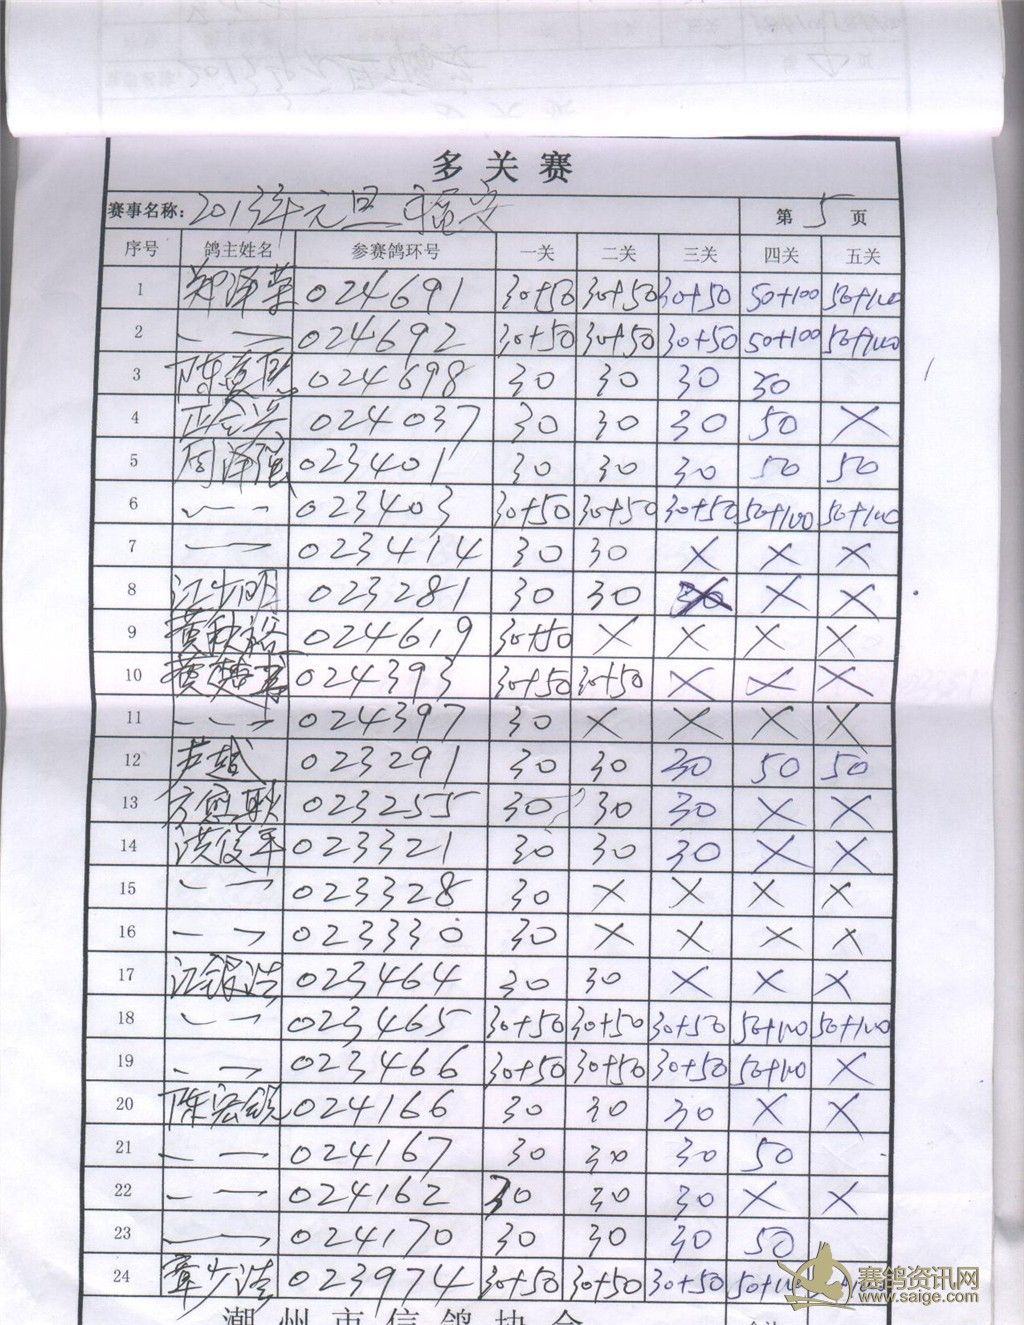 多关赛
赛事名称: 2013年元旦福安 第 5 页
序号 鸽主姓名 参赛鸽环号 一关 二关 三关 四关 五关
1 郑泽荣 024691 30+50 30+50 30+50 50+100 50+100
2 〃 024692 30+50 30+50 30+50 50+100 50+100
3 024698 30 30 30 30
4 024037 30 30 30 50 ×
5 周泽强 023401 30 30 30 50 50
6 〃 023403 30+50 30+50 30+50 50+100 50+100
7 〃 023414 30 30 × × ×
8 江少明 023281 30 30 × × ×
9 黄秋裕 024619 30+50 × × × ×
10 024393 30+50 30+50 × × ×
11 〃 024397 30 × × × ×
12 芦越 023291 30 30 30 50 50
13 023255 30 30 30 × ×
14 洪俊平 023321 30 30 30 × ×
15 〃 023328 30 × × × ×
16 〃 023330 30 × × × ×
17 江银浩 023464 30 30 × × ×
18 〃 023465 30+50 30+50 30+50 50+100 50+100
19 〃 023466 30+50 30+50 30+50 50+100 ×
20 陈宏锐 024166 30 30 30 × ×
21 〃 024167 30 30 30 50
22 〃 024162 30 30 30 × ×
23 〃 024170 30 30 30 50
24 章少浩 023974 30+50 30+50 30+50 50+100
潮州市信鸽协会
赛鸽资讯网
www.saige.com